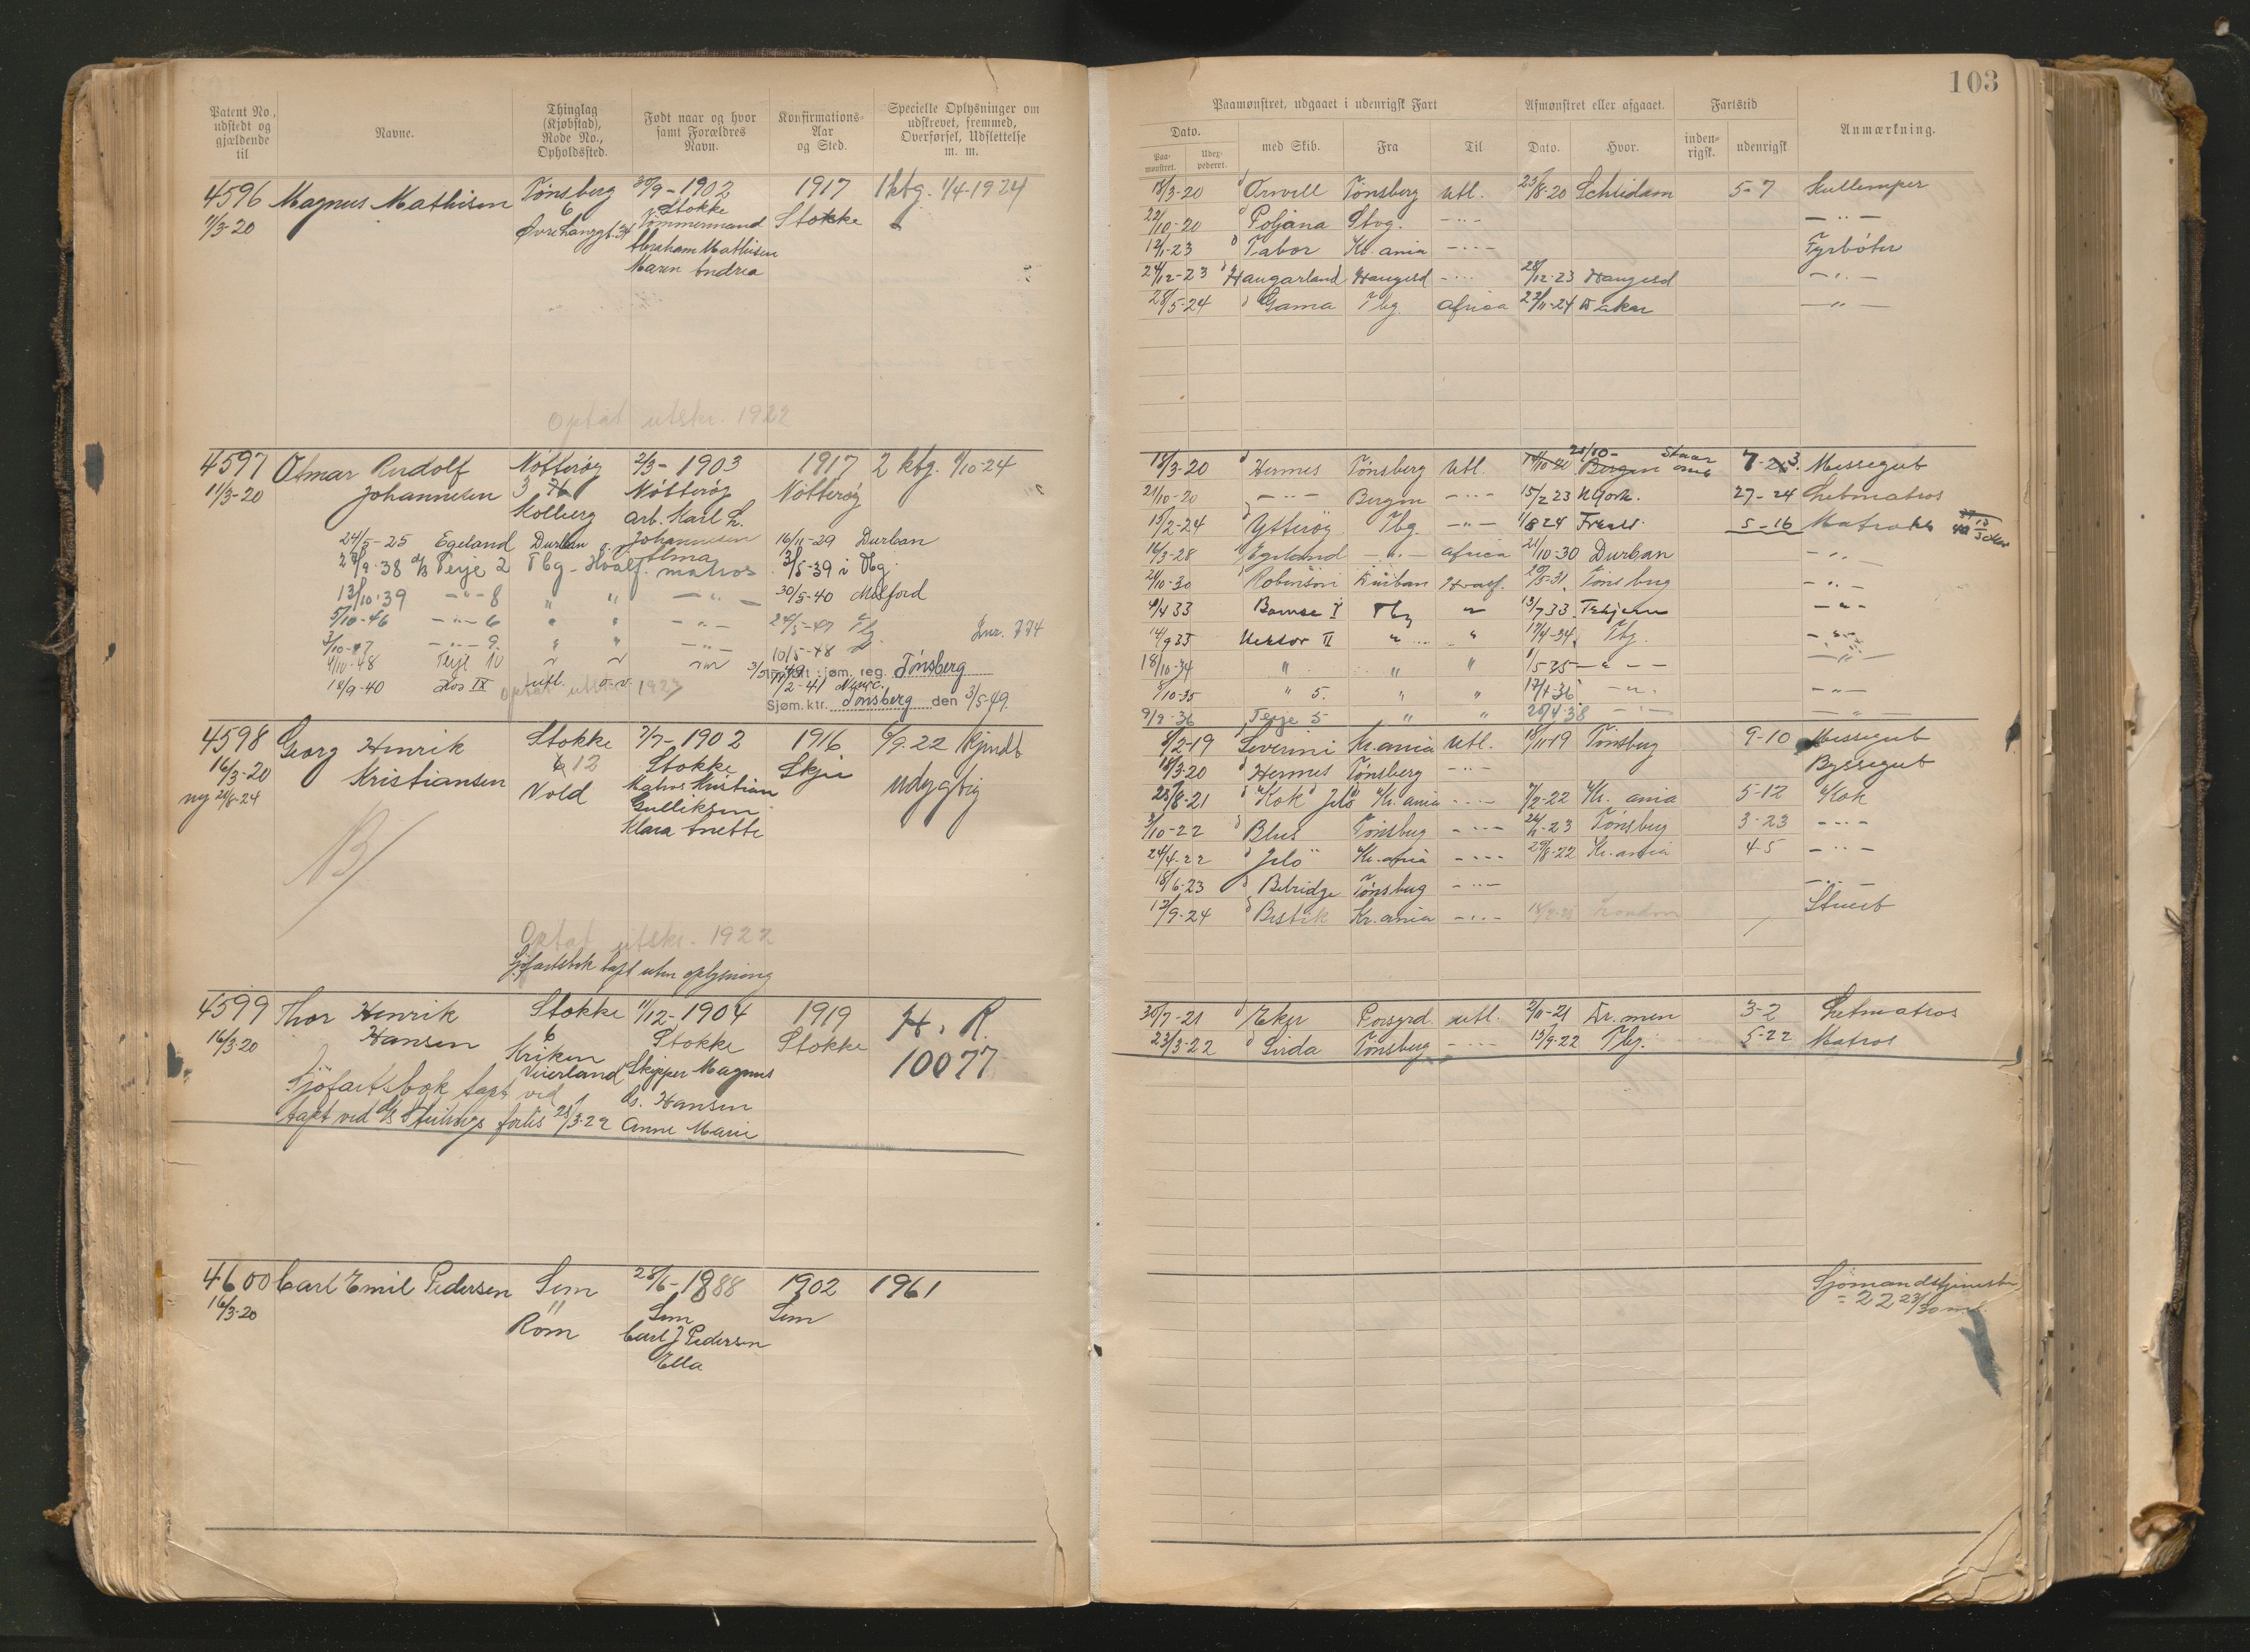 103
Patent No., udstedt og gjældende til
Navne.
Thinglag (Kjøbstad), Rode No., Opholdssted.
Født naar og hvor samt Forældres Navn.
Konfirmations-Aar og Sted.
Specielle Oplysninger om udskrevet, fremmed, Overførsel, Udslettelse m. m.
Paamønstret, udgaaet i udenrigsk Fart
Afmønstret eller afgaaet.
Fartstid
Anmærkning.
Dato.
Paa-mønstret.
Udex-pederet.
med Skib.
Fra
Til
Dato.
Hvor.
inden-rigsk.
udenrigsk
4596 Magnus Mathisen Tønsberg 30/9-1902 1917 1 kbg. 1/4-1924
11/3-20 6 Stokke Stokke
Øvre Langgt. 34 Tømmermand
Abraham Mathisen
Maren Andrea
Optat utskr. 1922
18/3-20 Orwell Tønsberg Utl. 23/8-20 Schiedam 5-7 Kullemper
22/10-20 Poljana Stvg. -"- -"-
12/1-23 Tabor Kr.ania -"- Fyrbøter
24/12-23 Haugarland Haugesd -"- 28/12-23 Haugesd -"-
28/5-24 Gama Tbg. Africa 22/11-24 -"-
4597 Otmar Rudolf Nøtterøy 2/3-1903 1917 2 kbg. 1/10-24
11/3-20 Johannesen 3 Nøtterøy Nøtterøy
Kolberg arb. Karl L.
Johannesen
Alma
24/5-25 Egeland Durban 16/11-29 Durban
9-38 Terje 2 Tbg-Hvalf. matros 3/5-39 i Tbg.
13/10-39 -"- 8 " " -"- 30/5-40 Milford
5/10-46 -"- 6 " " -"- 24/5-47 Tbg
3/10-47 -"- 9 " " -"- 10/5-48
Jnr. 774
4/10-48 Terje 10
18/9-40 Kos IX 2-41
jøm. reg. Tønsberg
Sjøm.ktr. Tønsberg den 3/5-49.
18/3-20 Hermes Tønsberg Utl. Bergen Messegut
21/10-20 -"- Bergen -"- 15/2 23 N York. 27-24 Letmatros
15/2-24 Ytterøy Tbg. -"- 1/8 24 5-16 Matros
16/3-28 Egeland -"- Africa 21/10-30 Durban -"-
21/10-30 Robinson Durban Hvalf. 29/5-31 Tønsberg -"-
4/4 33 Bamse I Tbg " 13/7 33 -"-
14/9 33 Hektor II " " 17/4-34 Tbg -"-
18/10-34 " " " 1/5-35 -"- -"-
8/10-35 " 5. " " 17/4-36 -"- -"-
9/9-36 Terje 5 " " 20/4-38 -"- -"-
4598 Georg Henrik Stokke 7/7-1902 1916 6/9-22 kjendt
16/3-20 Kristiansen 12 Stokke Skjee udygtig
ny 21/8-24 Vold Matros Kristian
Gulliksen
Klara Anette
Optat utskr. 1922
Sjøfartsbok tapt uten oplysning
8/2-19 Severini Kr.ania Utl. 18/11-19 Tønsberg 9-10 Messegut
18/3-20 Hermes Tønsberg -"- Byssegut
25/8-21 Kok Jelø Kr.ania -"- 7/2-22 Kr.ania 5-12 Kok
3/10-22 Blus Tønsberg -"- 23 Tønsberg 3-23 -"-
24/4-22 Jelø Kr.ania -"- 29/8-22 Kr.ania 4-5 -"-
18/6-23 Belridge Tønsberg -"- -"-
12/9-24 Bestik Kr.ania -"- London Stuert
4599 Thor Henrik Stokke 11/12-1904 1919 H. R.
16/3-20 Hansen 6 Stokke Stokke 10077
Kriken
Veierland Skipper Magnus
Sjøfartsbok tapt ved G. Hansen
tapt ved forlis 25/3-22 Anne Marie
30/7-21 Eker Porsgrd. utl. 2/11-21 Dr.men 3-2 Letmatros
23/3-22 Sirda Tønsberg -"- 13/9-22 Tbg. 5-22 Matros
4600 Carl Emil Pedersen Sem 28/6-1888 1902 1961
16/3-20 11 Sem Sem
Rom Carl J. Pedersen
Ella
Sjømandstjeneste
= 22 23/30 m.